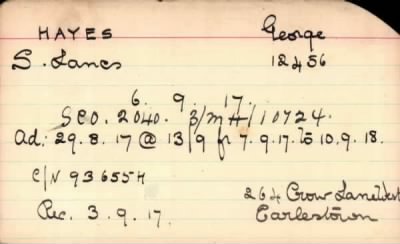 HAYES George
S. Lancs 12456
6. 9. 17.
SCO. 2040. 3/MH/10724.
Ad: 29. 8. 17 @ 13/9 fr 7. 9. 17. to 10. 9. 18.
C/N 936554
Rec. 3. 9. 17. 264 Crow Lane West
Earlestown